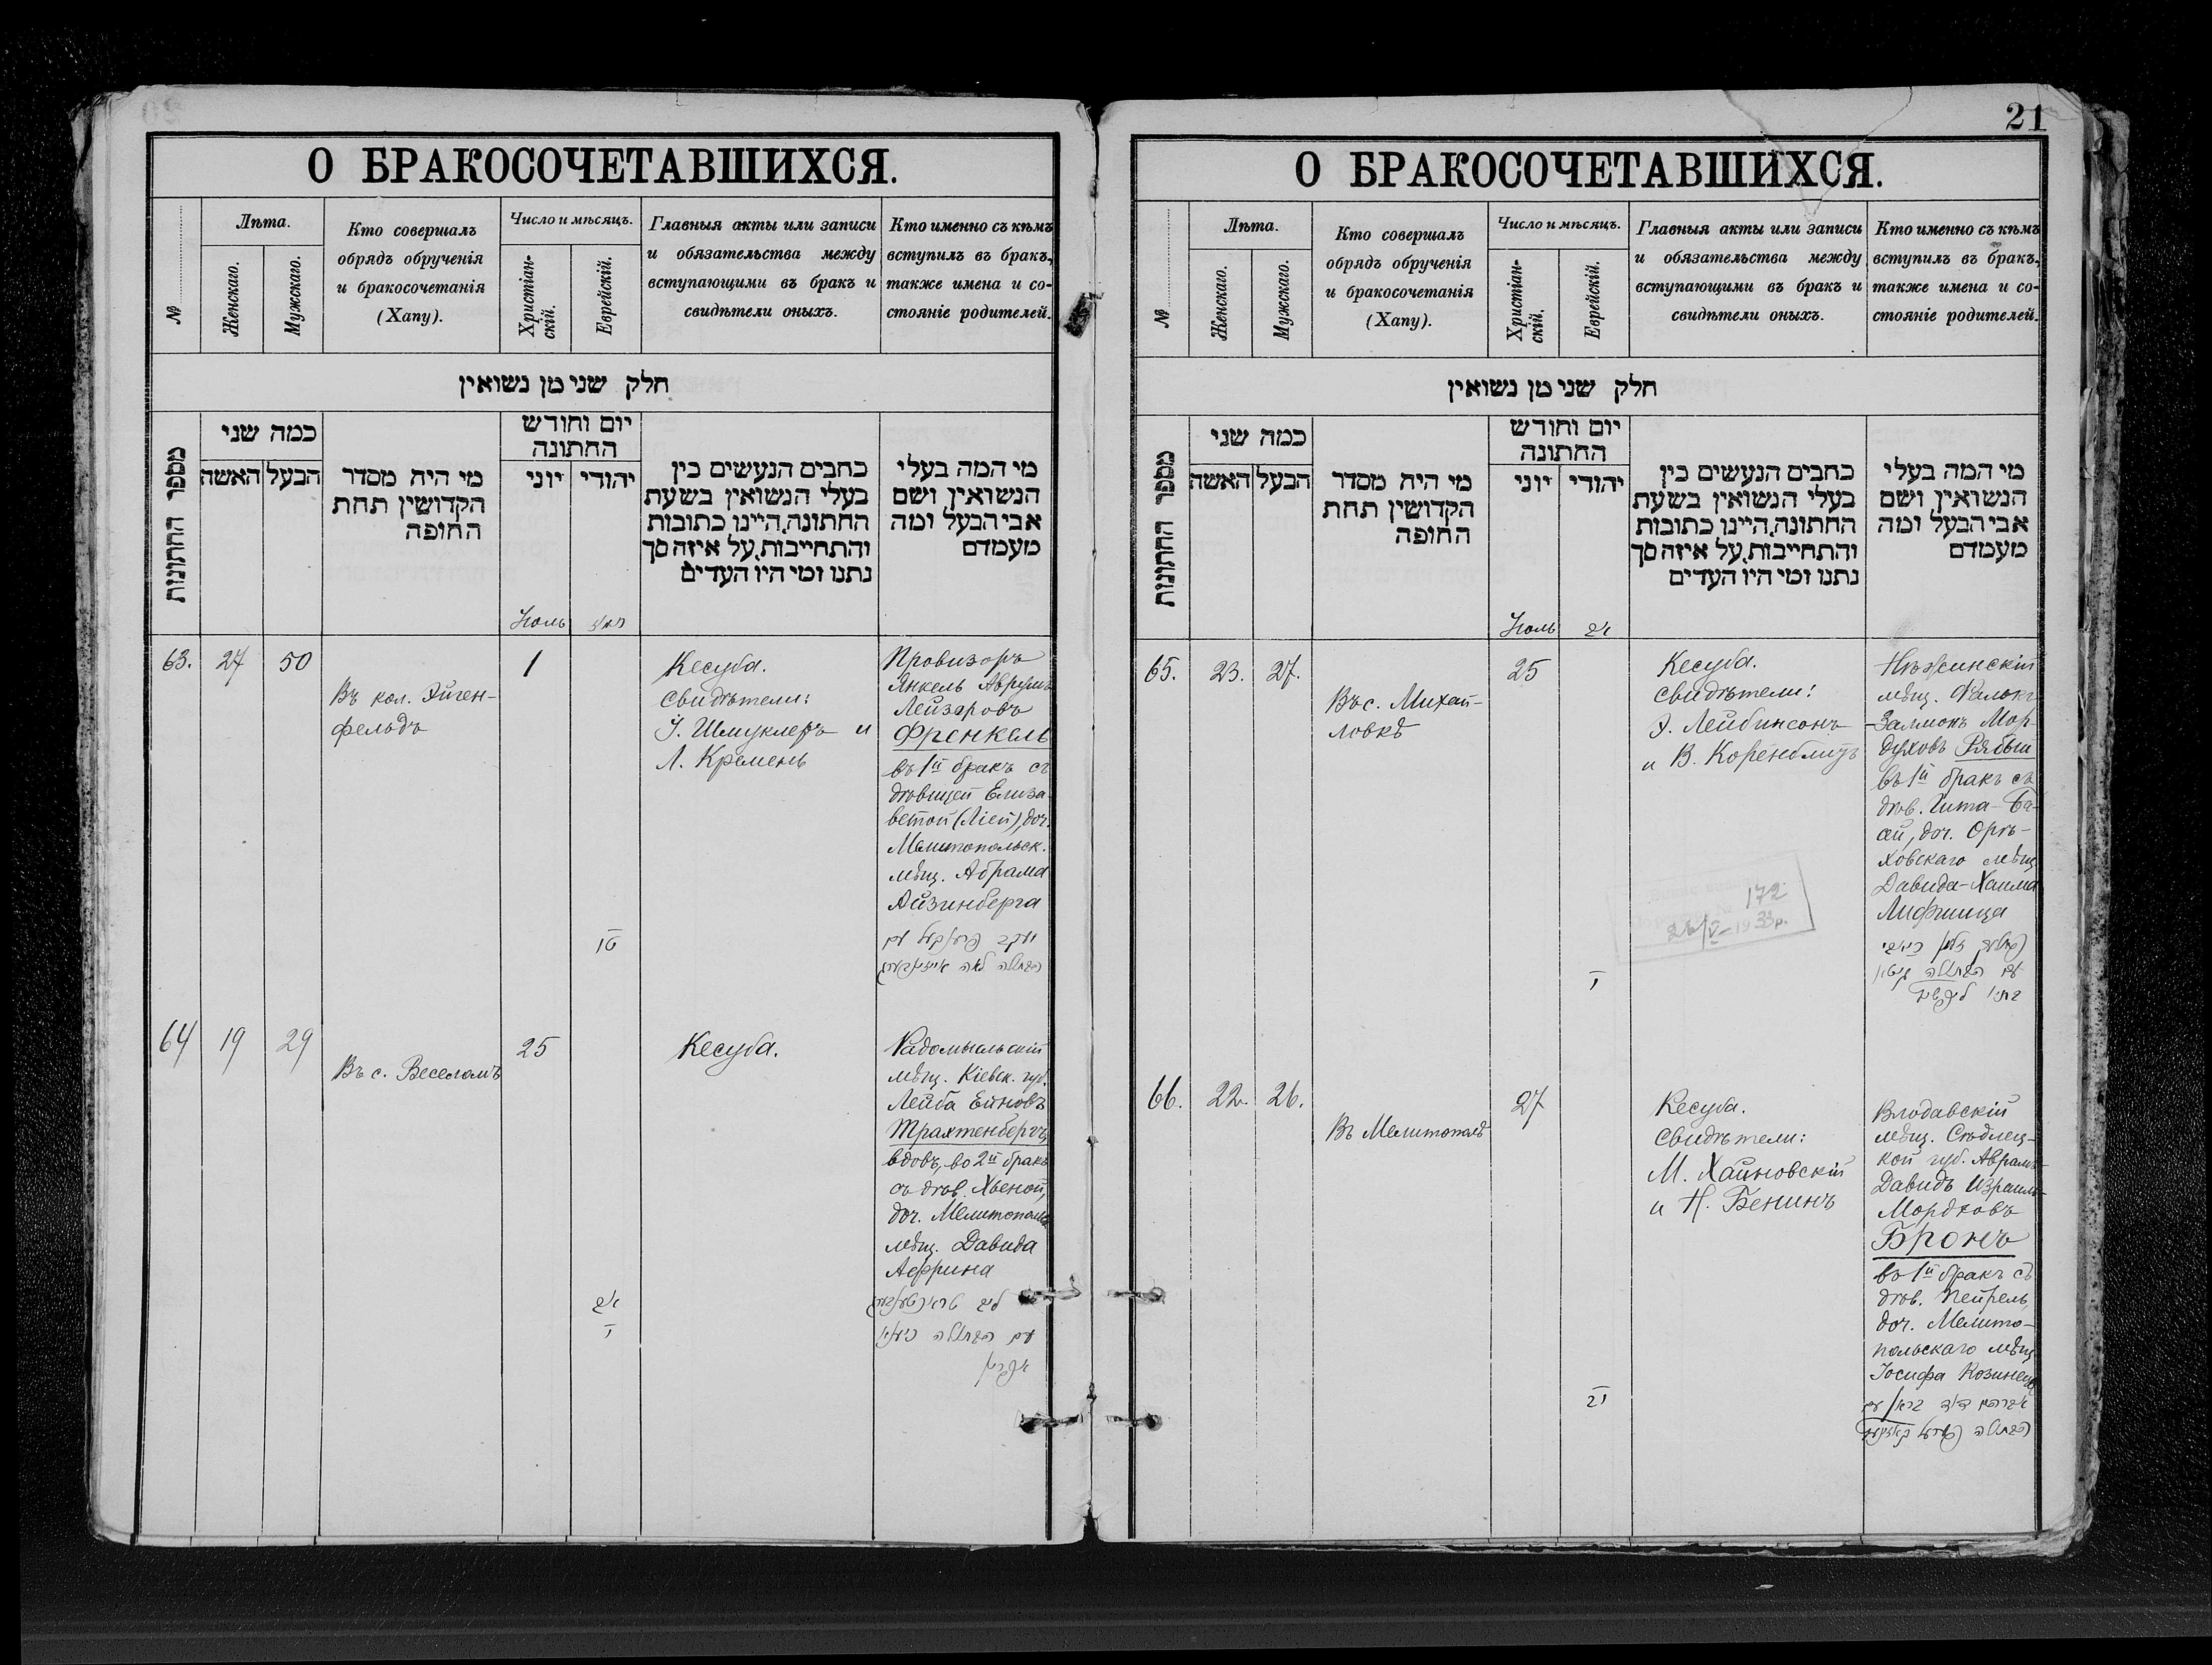 О БРАКОСОЧЕТАВШИХСЯ.
№
Лѣта.
Женскаго.
Мужскаго.
Кто совершалъ
обрядъ обрученія
и бракосочетанія
(Хапу).
Число и мѣсяцъ.
Христіан-
скій.
Еврейскій.
Главныя акты или записи
и обязательства между
вступающими въ бракъ и
свидѣтели оныхъ.
Кто именно съ кѣмъ
вступилъ въ бракъ,
также имена и со-
стояніе родителей.
חלק שני מן נשואין
מספר החתונות
כמה שני
האשה
הבעל
מי היה מסדר
הקדושין תחת
החופה
יום וחודש
החתונה
יוני
יהודי
כתבים הנעשים בין
בעלי הנשואין בשעת
החתונה, היינו כתובות
והתחייבות, על איזה סך
נתנו ומי היו העדים
מי המה בעלי
הנשואין ושם
אבי הבעל ומה
מעמדם
Іюль
תמוז
63.
27
50
Въ кол. Эйген-
фельдъ
1
טו
Кесуба.
Свидѣтели:
І. Шмуклеръ и
Л. Кремень
Провизоръ
Янкель Аврумъ
Лейзаровъ
Френкель
въ 1й бракъ съ
дѣвицей Елиза-
ветой (Ліей), доч.
Мелитопольск.
мѣщ. Абрама
Айзинберга
יעקב פרענקעל עם
הבתולה לאה אייזינבערג
64
19
29
Въ с. Веселомъ
25
אב
י
Кесуба.
Радомысльскій
мѣщ. Кіевск. губ.
Лейба Ейновъ
Трахтенбергъ,
вдовъ, во 2й бракъ
съ дѣв. Хьеной,
доч. Мелитопол.
мѣщ. Давида
Африна
ליב טראכטענבערג
עם הבתולה
אפרין
21
О БРАКОСОЧЕТАВШИХСЯ.
№
Лѣта.
Женскаго.
Мужскаго.
Кто совершалъ
обрядъ обрученія
и бракосочетанія
(Хапу).
Число и мѣсяцъ.
Христіан-
скій.
Еврейскій.
Главныя акты или записи
и обязательства между
вступающими въ бракъ и
свидѣтели оныхъ.
Кто именно съ кѣмъ
вступилъ въ бракъ,
также имена и со-
стояніе родителей.
חלק שני מן נשואין
מספר החתונות
כמה שני
האשה
הבעל
מי היה מסדר
הקדושין תחת
החופה
יום וחודש
החתונה
יוני
יהודי
כתבים הנעשים בין
בעלי הנשואין בשעת
החתונה, היינו כתובות
והתחייבות, על איזה סך
נתנו ומי היו העדים
מי המה בעלי
הנשואין ושם
אבי הבעל ומה
מעמדם
Іюль
אב
65.
23.
27.
Въ с. Михай-
ловкѣ
25
י
Кесуба.
Свидѣтели:
Э. Лейбинсонъ
и В. Коренблитъ
172
26/V-1933р.
Нѣжинскій
мѣщ. Фалькъ-
Залмонъ Мор-
духовъ Рябый
въ 1й бракъ съ
дѣв. Гита-Ба-
ай, доч. Орѣ-
ховскаго мѣщ.
Давида-Хаима
Лифшица
עם הבתולה גיטא
ליפשיץ
66.
22.
26.
Въ Мелитополѣ
27
יב
Кесуба.
Свидѣтели:
М. Хайновскій
и Н. Бенинъ
Влодавскій
мѣщ. Сѣдлец-
кой губ. Аврамъ-
Давидъ Израиль-
Мордковъ
Бронъ
въ 1й бракъ съ
дѣв. Пейрель,
доч. Мелито-
польскаго мѣщ.
Іосифа Козинец
אברהם דוד בראן עם
הבתולה פערל קאזינעץ